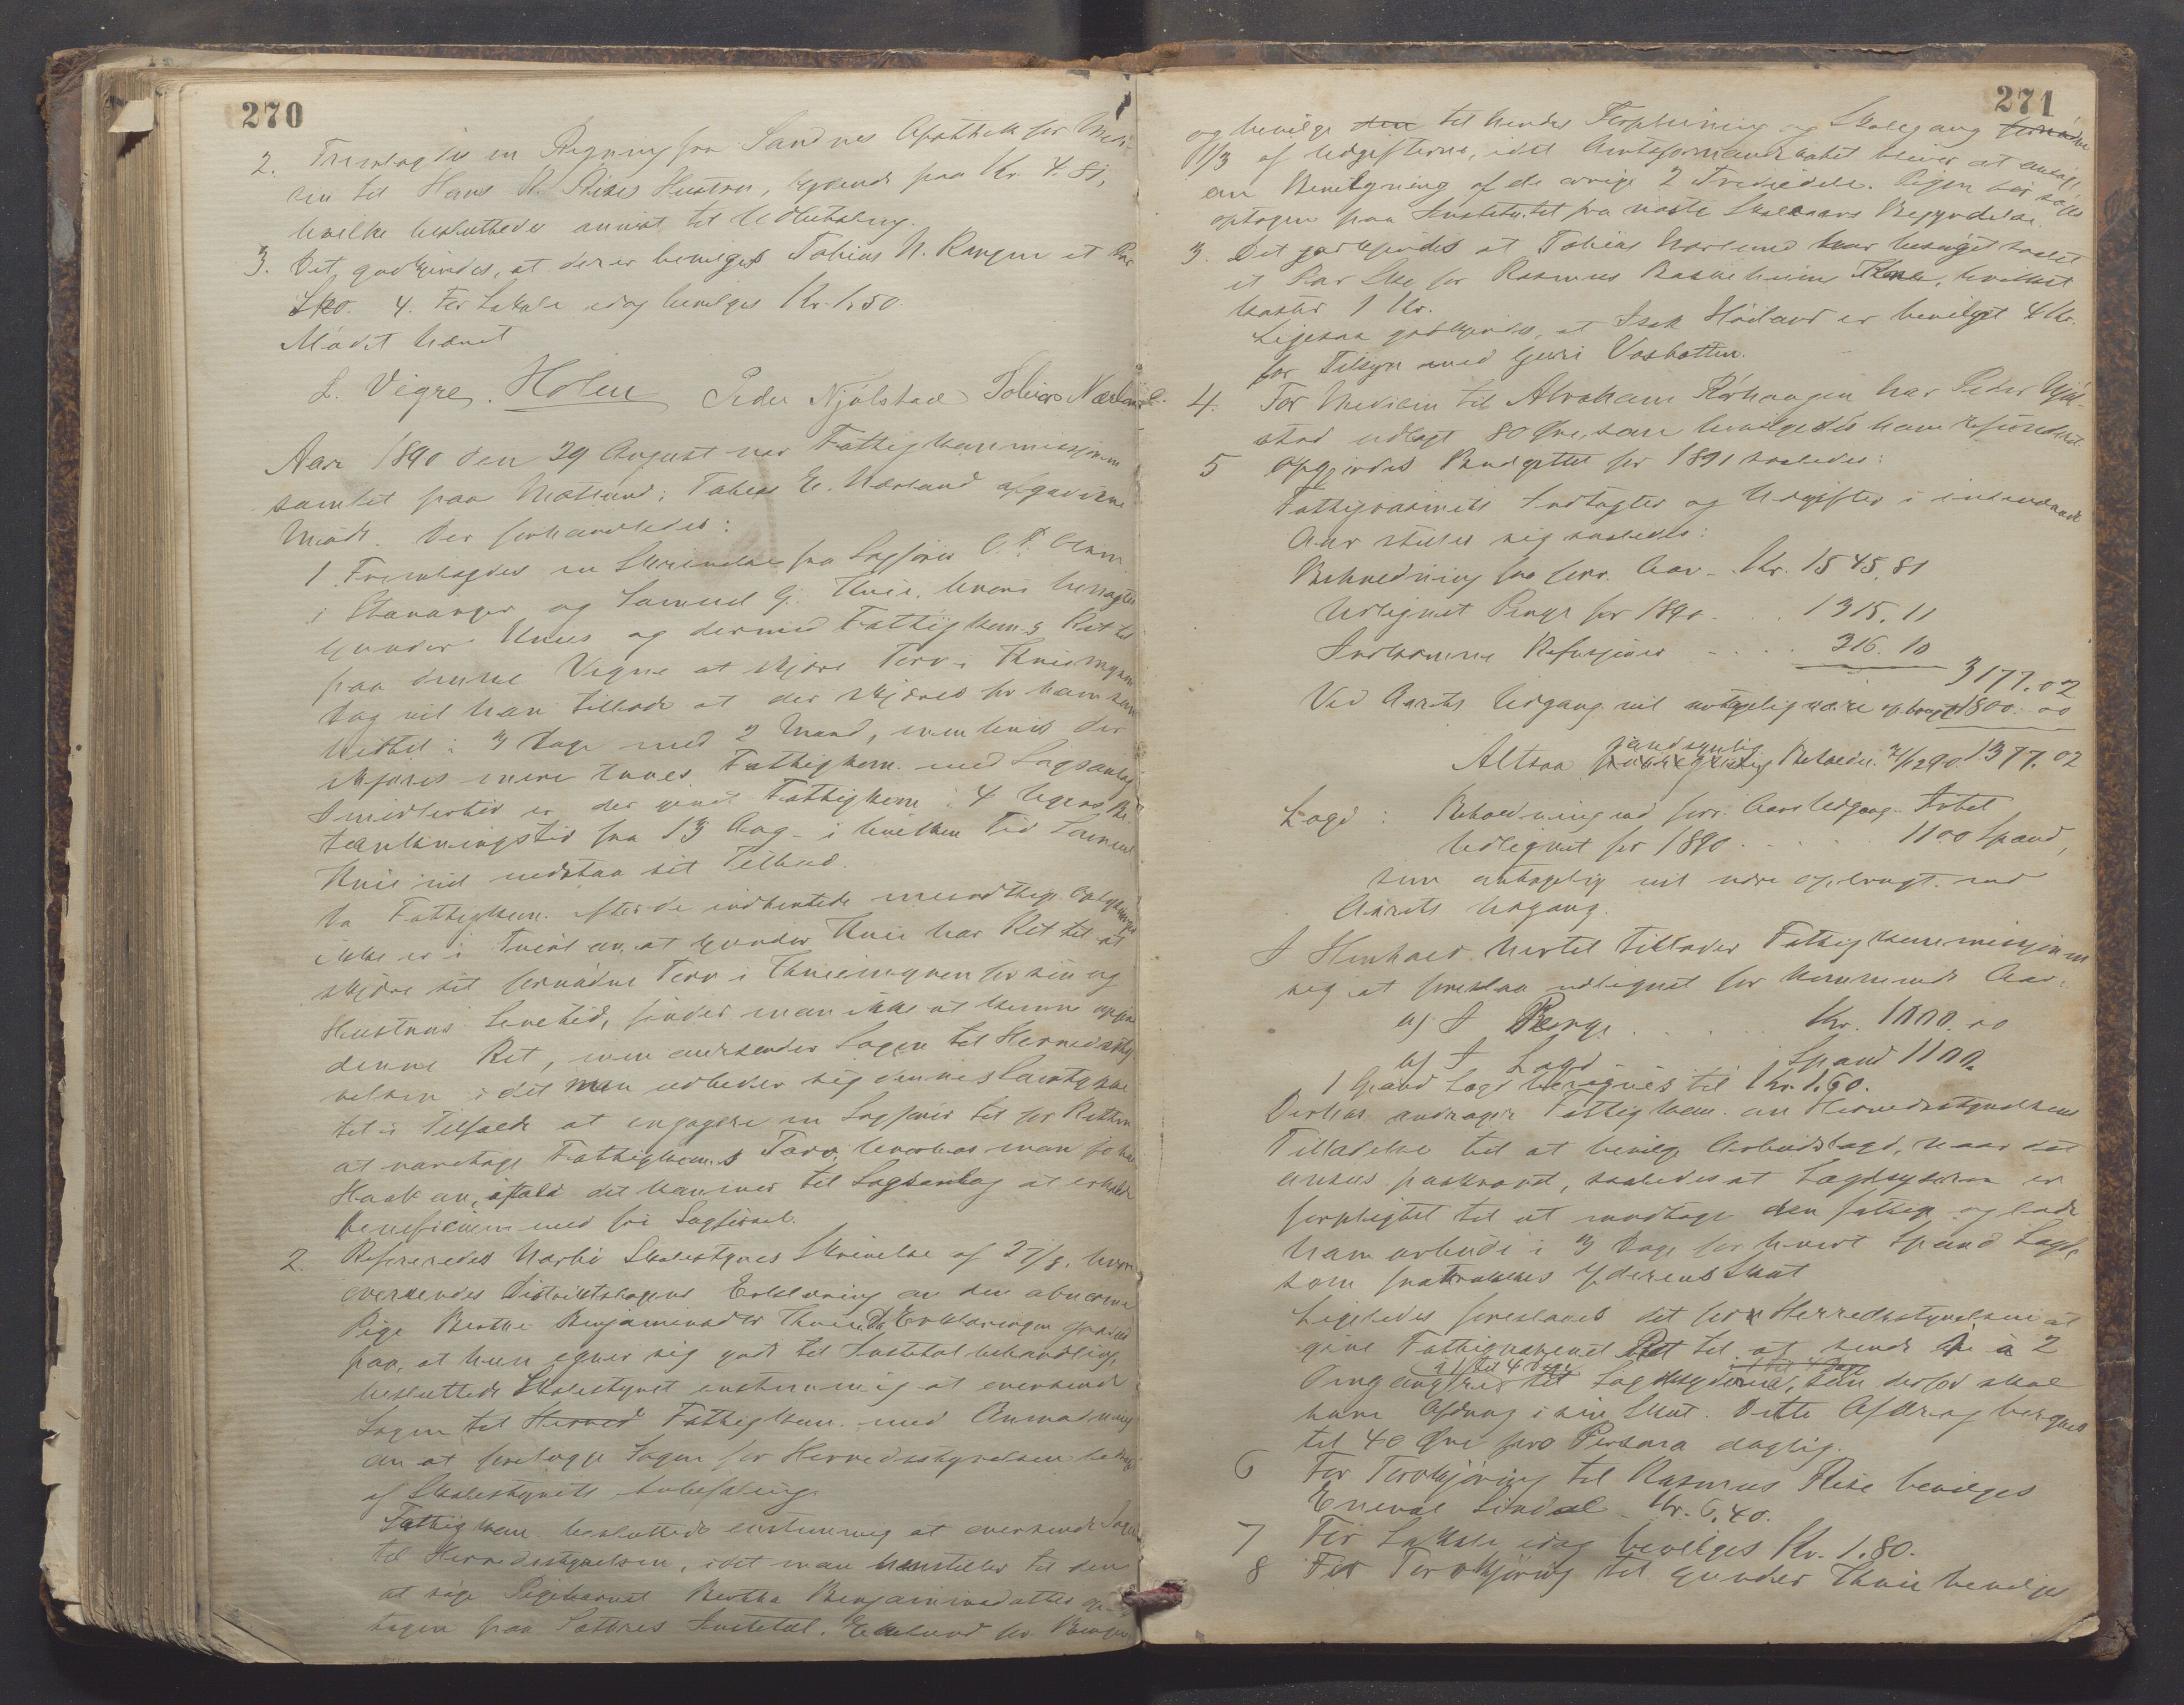 270
2. Fremlagdes en Regning fra Sandnes Apothek for Medi-
sin til Hans A. Rises Hustru, lydende paa Kr. 4.81,
hvilke besluttedes anvist til Udbetaling.
3. Det godkjendes, at der er bevilget Tobias N. Rangen et Par
Sko. 4. For Lokale idag bevilges Kr. 1.50.
Mødet hævet
L. Vigre. Holen Peder Njølstad Tobias Nærland.
Aar 1890 den 29 August var Fattigkommissionen
samlet paa Nærland; Tobias E. Nærland afgav
Møde. Der forhandledes:
1. Fremlagdes en Skrivelse fra Sagfører
i Stavanger og Samuel G. Thuie, hvori benægtes
Gunder Thuies og dermed Fattigkom.s Ret til
paa dennes Vegne at skjære Torv i Thuiemyren
Dog vil han tillade at der skjæres for ham som
hidtil i 3 Dage med 2 Mand, men hvis der
skjæres mere trues Fattigkom. med Sagsanlæg
Imidlertid er der givet Fattigkom. 4 Ugers Be-
tænkningstid fra 13 Aug. i hvilken Tid Samuel
Thuie vil vedstaa sit Tilbud.
Da Fattigkom. efter de indhentede mundtlige Oplysninger
ikke er i Tvivl om, at Gunder Thuie har Ret til at
skjære sit fornødne Torv i Thuiemyren for sin og
Hustrus Levetid, finder man ikke at kunne opgive
denne Ret, men oversender Sagen til Herredssty-
relsen idet man udbeder sig dennes Samtykke
til i Tilfælde at engagere en Sagfører til for Retten
at varetage Fattigkom.s Tarv, hvorhos man
an, ifald det kommer til Sagsanlæg at erholde
beneficium med fri Sagførsel.
2. Refereredes Nærbø Skolestyres Skrivelse af 27/8, hvori
oversendes Distriktslægens Erklæring om den abnorme
Pige Berthe Benjaminsdtr Thuie. Da Erklæringen gaar ud
paa, at hun egner sig godt til Institutbehandling,
besluttede Skolestyret enstemmig at oversende
Sagen til Herred Fattigkom. med Anmodning
om at forelægge Sagen for Herredsstyrelsen
af Skolestyrets Anbefaling.
Fattigkom. besluttede enstemmig at oversende Sagen
til Herredsstyrelsen, idet man henstiller til den
at søge Pigebarnet Bertha Benjaminsdatter op-
tagen paa Institut, Eklund
271
og bevilge den til hendes Forpleining og Skolegang fornødne
1/3 af Udgifterne, idet Amtsformandskabet bliver at ansøge
om Bevilgning af de øvrige 2 Trediedele. Pigen bør søges
optagen paa Institutet fra næste Skoleaars Begyndelse.
3. Det godkjendes at Tobias Nærland har besørget saalet
et Par Sko for Rasmus Kone, hvilket
koster 1 Kr.
Ligesaa godkjendes, at Isak Høiland er bevilget 4 Kr.
for Tilsyn med Guri Vosbotten.
4. For Medicin til Abraham Rørhaugen har Peder Njøl-
stad udlagt 80 Øre, som bevilgedes ham refunderet.
5 Opgjordes Budgettet for 1891 saaledes:
Fattigvæsenets Indtægter og Udgifter i indeværende
Aar stiller sig saaledes:
Beholdning fra forr. Aar Kr. 1545,81
Udlignet Penge for 1890 . . . 1315,11
Indkomne Refusjoner . . . . 316.10
3177.02
Ved Aarets Udgang vil antagelig være opbrugt 1800.00
Altsaa sandsynlig Beholdn. 31/12 90 1377.02
Lagd : Beholdning ved forr. Aars Udgang Intet
Udlignet for 1890 . . . . 1100 Spand,
som antagelig vil være opbrugt ved
Aarets Udgang.
I Henhold hertil tillader Fattigkommissionen
sig at foreslaa udlignet for kommende Aar:
a) I Penge . . . . . Kr. 1000.00
b) I Lagd . . . . . Spand 1100.
1 Spand Lagd beregnes til Kr. 1.60.
Derhos andrager Fattigkom. om Herredsstyrelsens
Tilladelse til at bevilge Arbeidslagd, naar det
ansees paakrævet, saaledes at Lagdsyderen er
forpligtet til at modtage den fattige og lade
ham arbeide i 3 Dage for hvert Spand Lagd,
som fratrækkes Yderens Skat
Ligeledes foreslaaes det for Herredsstyrelsen at
give Fattigvæsenet Ret til at sende 1 à 2
Omgangsfrie i 1 til 4 Dage til Lagdsyderne, som derfor skal
have Afdrag i sin Skat. Dette Afdrag beregnes
til 40 Øre pro Persona daglig.
6 For Torvkjøring til Rasmus Rise bevilges
Eneval Lindal Kr. 6,40.
7 For Lokale idag bevilges Kr. 1.80.
8 For Torvkjøring til Gunder Thuie bevilges